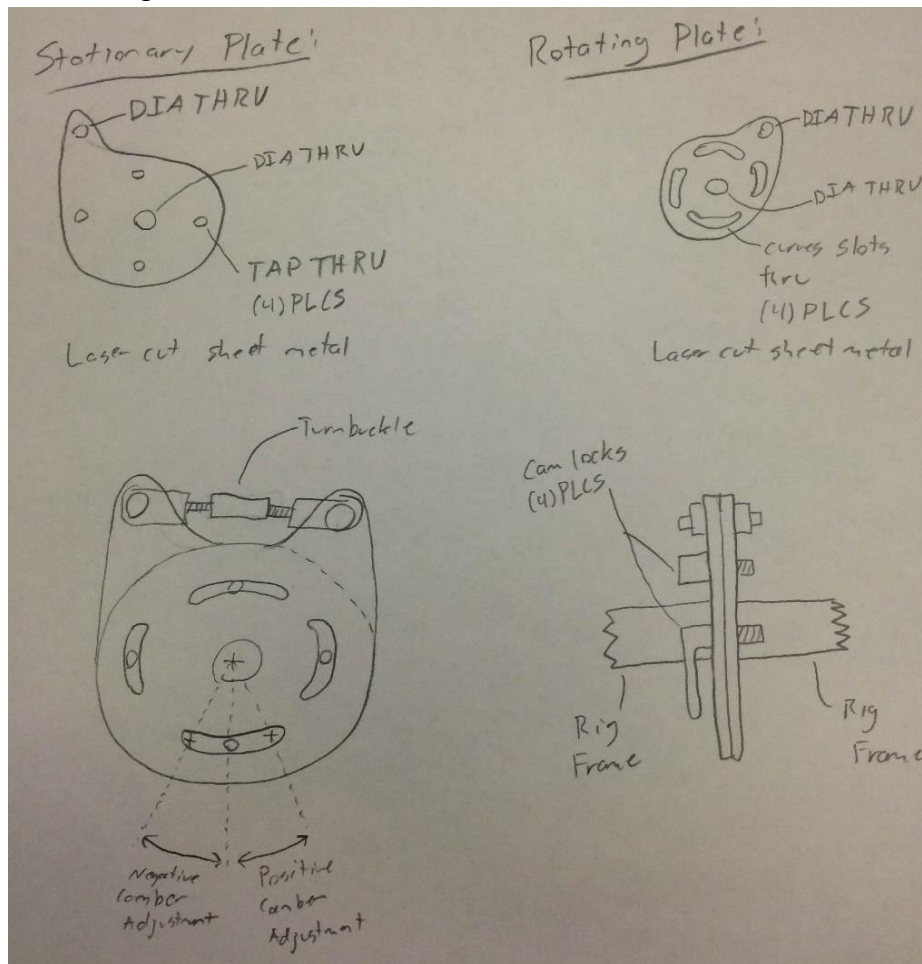 Stationary Plate:
DIA THRU
DIA THRU
TAP THRU
(4) PLCS
Laser cut sheet metal
Rotating Plate:
DIA THRU
DIA THRU
curves slots
thru
(4) PLCS
Laser cut sheet metal
Turnbuckle
Negative
Camber
Adjustment
Positive
Camber
Adjustment
Cam locks
(4) PLCS
Rig
Frame
Rig
Frame